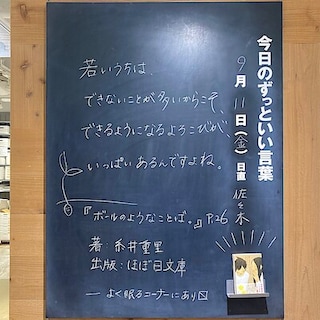 今日のずっといい言葉
9月11日(金) 日直 佐々木
若いうちは、
できないことが多いからこそ、
できるようになるよろこびが、
いっぱいあるんですよね。
『ボールのようなことば。』P.26
著:糸井重里
出版:ほぼ日文庫
── よく眠るコーナーにあり〼